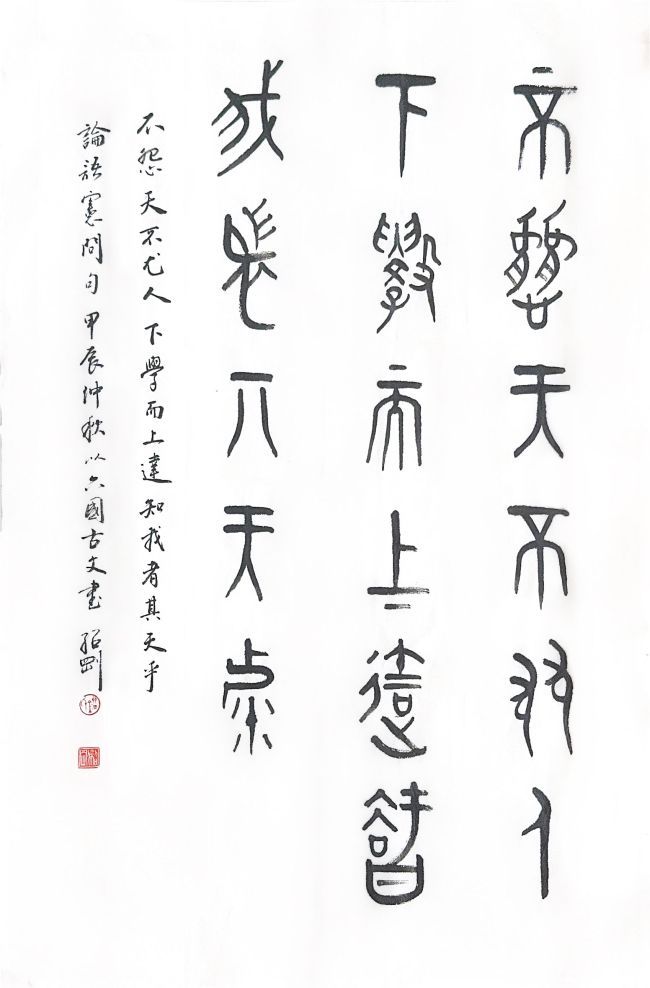 不怨天不尤人
下學而上達知
我者其天乎
不怨天不尤人下學而上達知我者其天乎
論語憲問句甲辰仲秋以六國古文書紹剛